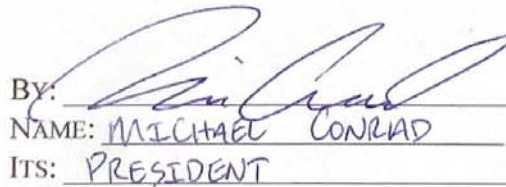 BY:
NAME: MICHAEL CONRAD
ITS: PRESIDENT